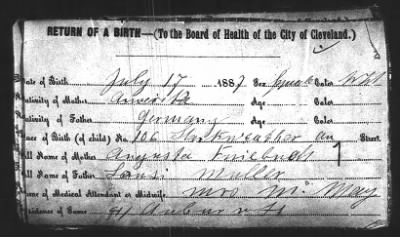 RETURN OF A BIRTH—(To the Board of Health of the City of Cleveland.)
Date of Birth July 17 1887 Sex Female Color Wht
Nativity of Mother America Age Color
Nativity of Father Germany Age Color
Place of Birth (of child) No. 106 Starkweather av Street
Full Name of Mother Augusta
Full Name of Father Muller
Name of Medical Attendant or Midwife, Mrs Mc May
Residence of Same Auburn St